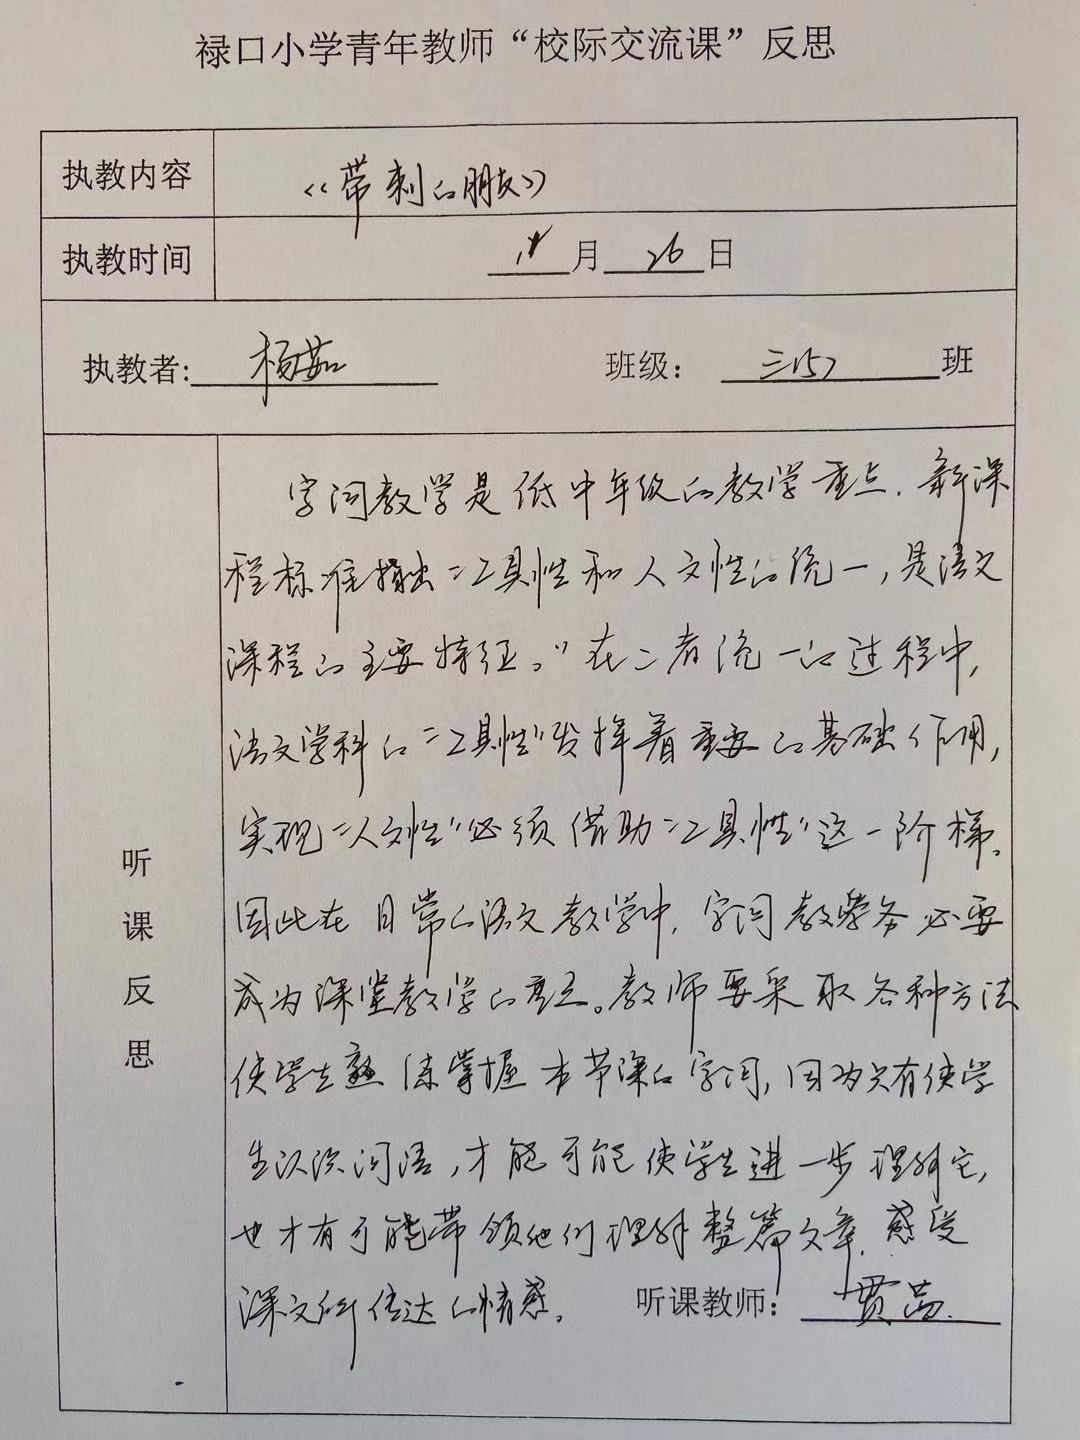 禄口小学青年教师“校际交流课”反思
执教内容 《带刺的朋友》
执教时间 月 26 日
执教者: 杨茹 班级： 三(5) 班
听课反思
字词教学是低中年级的教学重点．新课
程标准指出“工具性和人文性的统一，是语文
课程的主要特征。”在二者统一的过程中，
语文学科的“工具性”发挥着重要的基础作用，
实现“人文性”必须借助“工具性”这一阶梯。
因此在日常的语文教学中，字词教学务必要
成为课堂教学的重点。教师要采取各种方法
使学生熟练掌握本节课的字词，因为只有使学
生认识词语，才能可能使学生进一步理解它，
也才有可能带领他们理解整篇文章，感受
课文所传达的情感。 听课教师： 贾